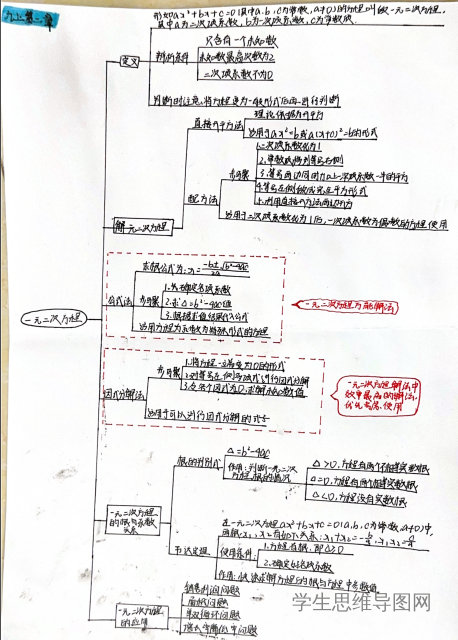 九上第二章
形如ax²+bx+c=0(其中a,b,c为常数,a≠0)的方程叫做一元二次方程,
其中a为二次项系数,b为一次项系数,c为常数项.
定义
判断条件
只含有一个未知数
未知数最高次数为2
二次项系数不为0
判断时注意,将方程变为一般形式后再进行判断
直接开平方法
理论依据为开平方
适用于ax²=b或a(x+c)²=b的形式
解一元二次方程
配方法
步骤
1.二次项系数化为1
2.常数项移到等号右侧
3.等号两边同时加上一次项系数一半的平方
4.等号左侧做成完全平方形式
5.利用直接开方法再次开方
适用于二次项系数化为1后,一次项系数为偶数的方程使用
一元二次方程
公式法
求根公式为:x=(-b±√b²-4ac)/2a
步骤
1.先确定各项系数
2.求△=b²-4ac值
3.根据求值结果代入公式
适用方程为系数为特殊形式的方程
一元二次方程万能解法
因式分解法
步骤
1.将方程一边变为0的形式
2.对等号左侧多项式进行因式分解
3.令各个因式为0,求解未知数值
适用于可以进行因式分解的式子
一元二次方程解法中
效率最高的解法,
优先考虑、使用
一元二次方程
的根与系数
关系
根的判别式
△=b²-4ac
作用:判断一元二次
方程根的情况
△>0,方程有两个不相等实数根
△=0,方程有两个相等实数根
△<0,方程没有实数根
韦达定理
在一元二次方程ax²+bx+c=0(a,b,c为常数,a≠0)中,
两根x₁,x₂有如下关系:x₁+x₂=-b/a,x₁·x₂=c/a
使用条件
1.方程有根,即△≥0
2.确定好各项系数
作用:快速求解方程与根与方程中参数值
一元二次方程
的应用
销售利润问题
面积问题
单双循环问题
增长率问题
学生思维导图网